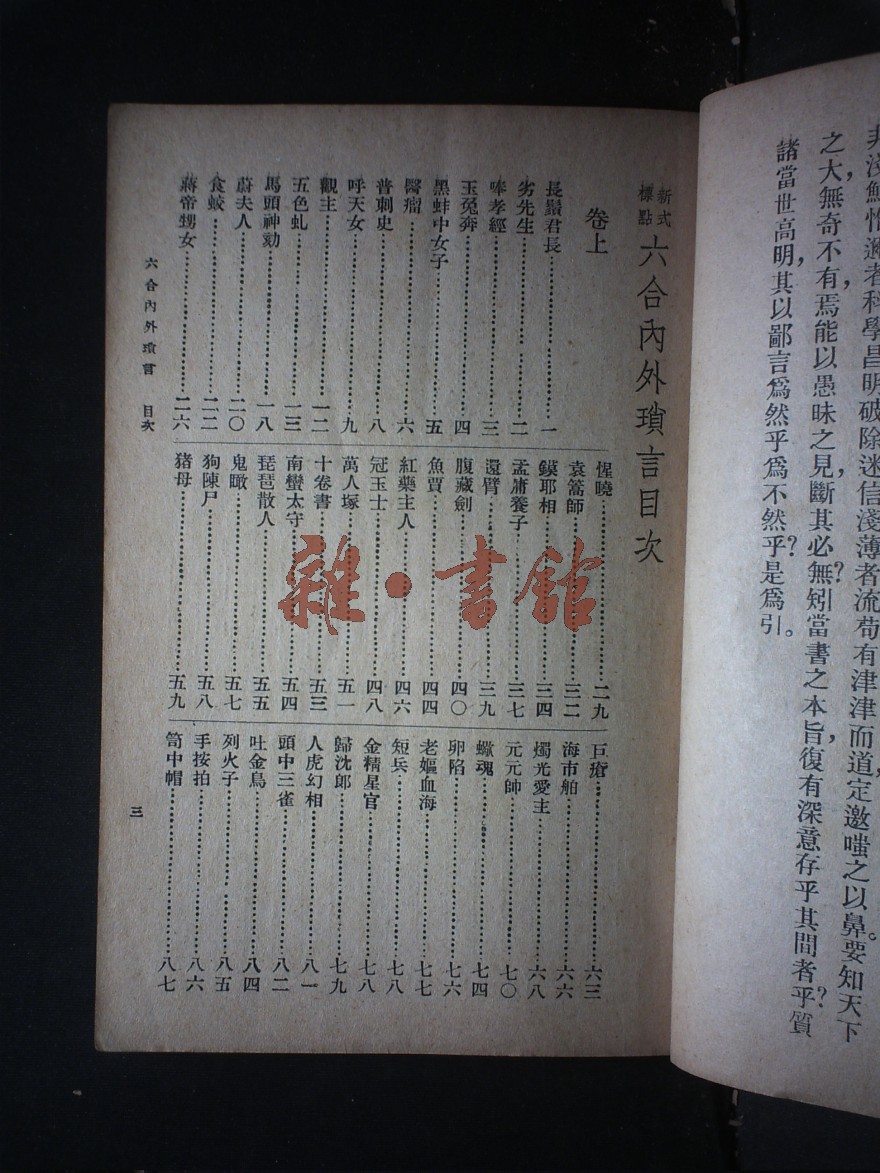 非淺鮮惟邇者科學昌明破除迷信淺薄者流苟有津津而道定邀嗤之以鼻。要知天下
之大,無奇不有,焉能以愚昧之見,斷其必無?矧當書之本旨,復有深意存乎其間者乎?質
諸當世高明,其以鄙言爲然乎?爲不然乎?是爲引。
新式標點 六合內外瑣言目次
卷上
長鬚君長…………一
劣先生…………二
奉孝經…………三
玉兔奔…………四
黑蚌中女子…………五
醫瘤…………六
普刺史…………八
呼天女…………九
觀主…………一二
五色虬…………一三
馬頭神勑…………一八
蔚夫人…………二〇
食蛟…………二二
蔣帝甥女…………二六
惺曉…………二九
袁蒿師…………三二
鏌耶相…………三四
孟庸養子…………三七
還臂…………三九
腹藏劍…………四〇
魚賈…………四四
紅藥主人…………四六
冠玉士…………四八
萬人塚…………五一
十卷書…………五三
南蠻太守…………五四
琵琶散人…………五五
鬼瞰…………五七
狗陳尸…………五八
猪母…………五九
巨瘡…………六三
海市舶…………六六
燭光愛主…………六八
元元帥…………七〇
蠍魂…………七四
卵陷…………七六
老嫗血海…………七七
短兵…………七八
金精星官…………七八
歸沈郎…………七九
人虎幻相…………八一
頭中三雀…………八二
吐金鳥…………八四
列火子…………八五
手按拍…………八六
笥中帽…………八七
六合內外瑣言 目次
三
雜·書館